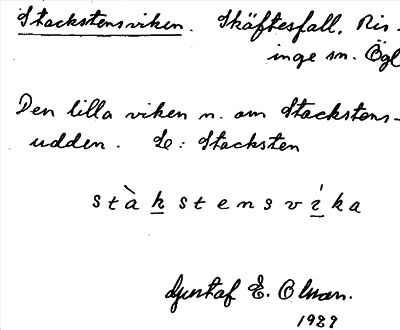 Stackstensviken. Skäftesfall, Ris-
inge sn. Ögl
Den lilla viken n. om Stackstens-
udden. L: Stacksten
stàkstensvíka
Gustaf E. Olson.
1929